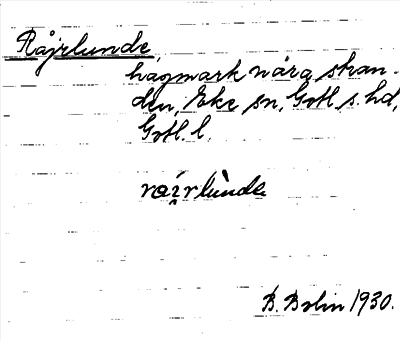 Råjrlunde,
hagmark nära stran-
den, Eke sn, Gotl. s. hd,
Gotl. l.
rai̯rlùnde
B. Bolin 1930.